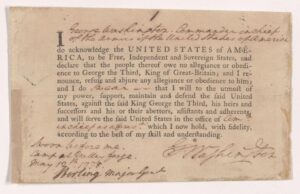 George Washington Commander in chief
of the armies of the United States of America
I do acknowledge the UNITED STATES of AME-
RICA, to be Free, Independent and Sovereign States, and
declare that the people thereof owe no allegiance or obedi-
ence to George the Third, King of Great-Britain; and I re-
nounce, refuse and abjure any allegiance or obedience to him;
and I do swear that I will to the utmost
of my power, support, maintain and defend the said United
States, against the said King George the Third, his heirs and
successors and his or their abettors, assistants and adherents,
and will serve the said United States in the office of Com
in chief as aforesaid which I now hold, with fidelity,
according to the best of my skill and understanding.
Sworn before me
Camp at Valley forge
May 12th 1778
Stirling Major Genl
G Washington